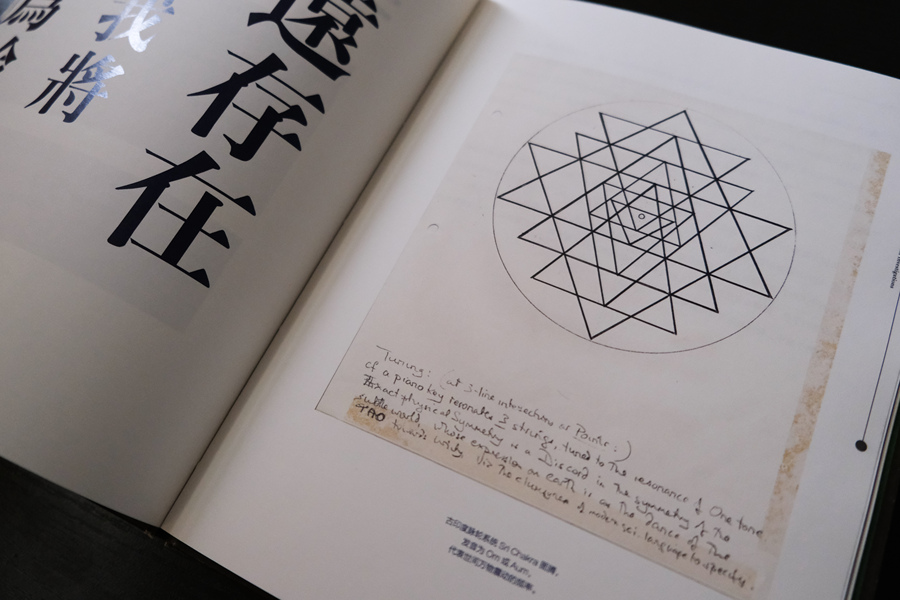 遠存在
我將
為今
Tuning: (at 3-line intersections or Points:)
of a piano key resonates 3 strings, tuned to the resonance of One tone.
Exact physical Symmetry is a Discord in the symmetry of the
subtle world, whose expression on earth is as The Dance of The
TAO towards unity via The clumsiness of modern sci. language to specify.
古印度 系統 Sri Chakra 圖騰,
發音為 Om 或 Aum,
代表世間万物震动的频率。